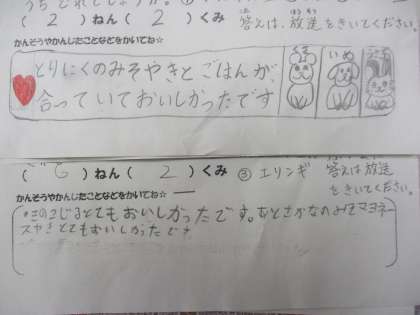 うち どれでしょうか。
( 2 )ねん( 2 )くみ 答えは、放送をきいてください。
かんそうやかんしたことなどをかいてね☆
とりにくのみそやきと ごはんが、
合っていておいしかったです
くま
いぬ
うさぎ
( 6 )ねん( 2 )くみ ③ エリンギ 答えは放送
をきいてください。
かんそうやかんじたことなどをかいてね☆
きのこじるとてもおいしかったです。むとさかなのみそマヨネー
スやきとてもおいしかったです